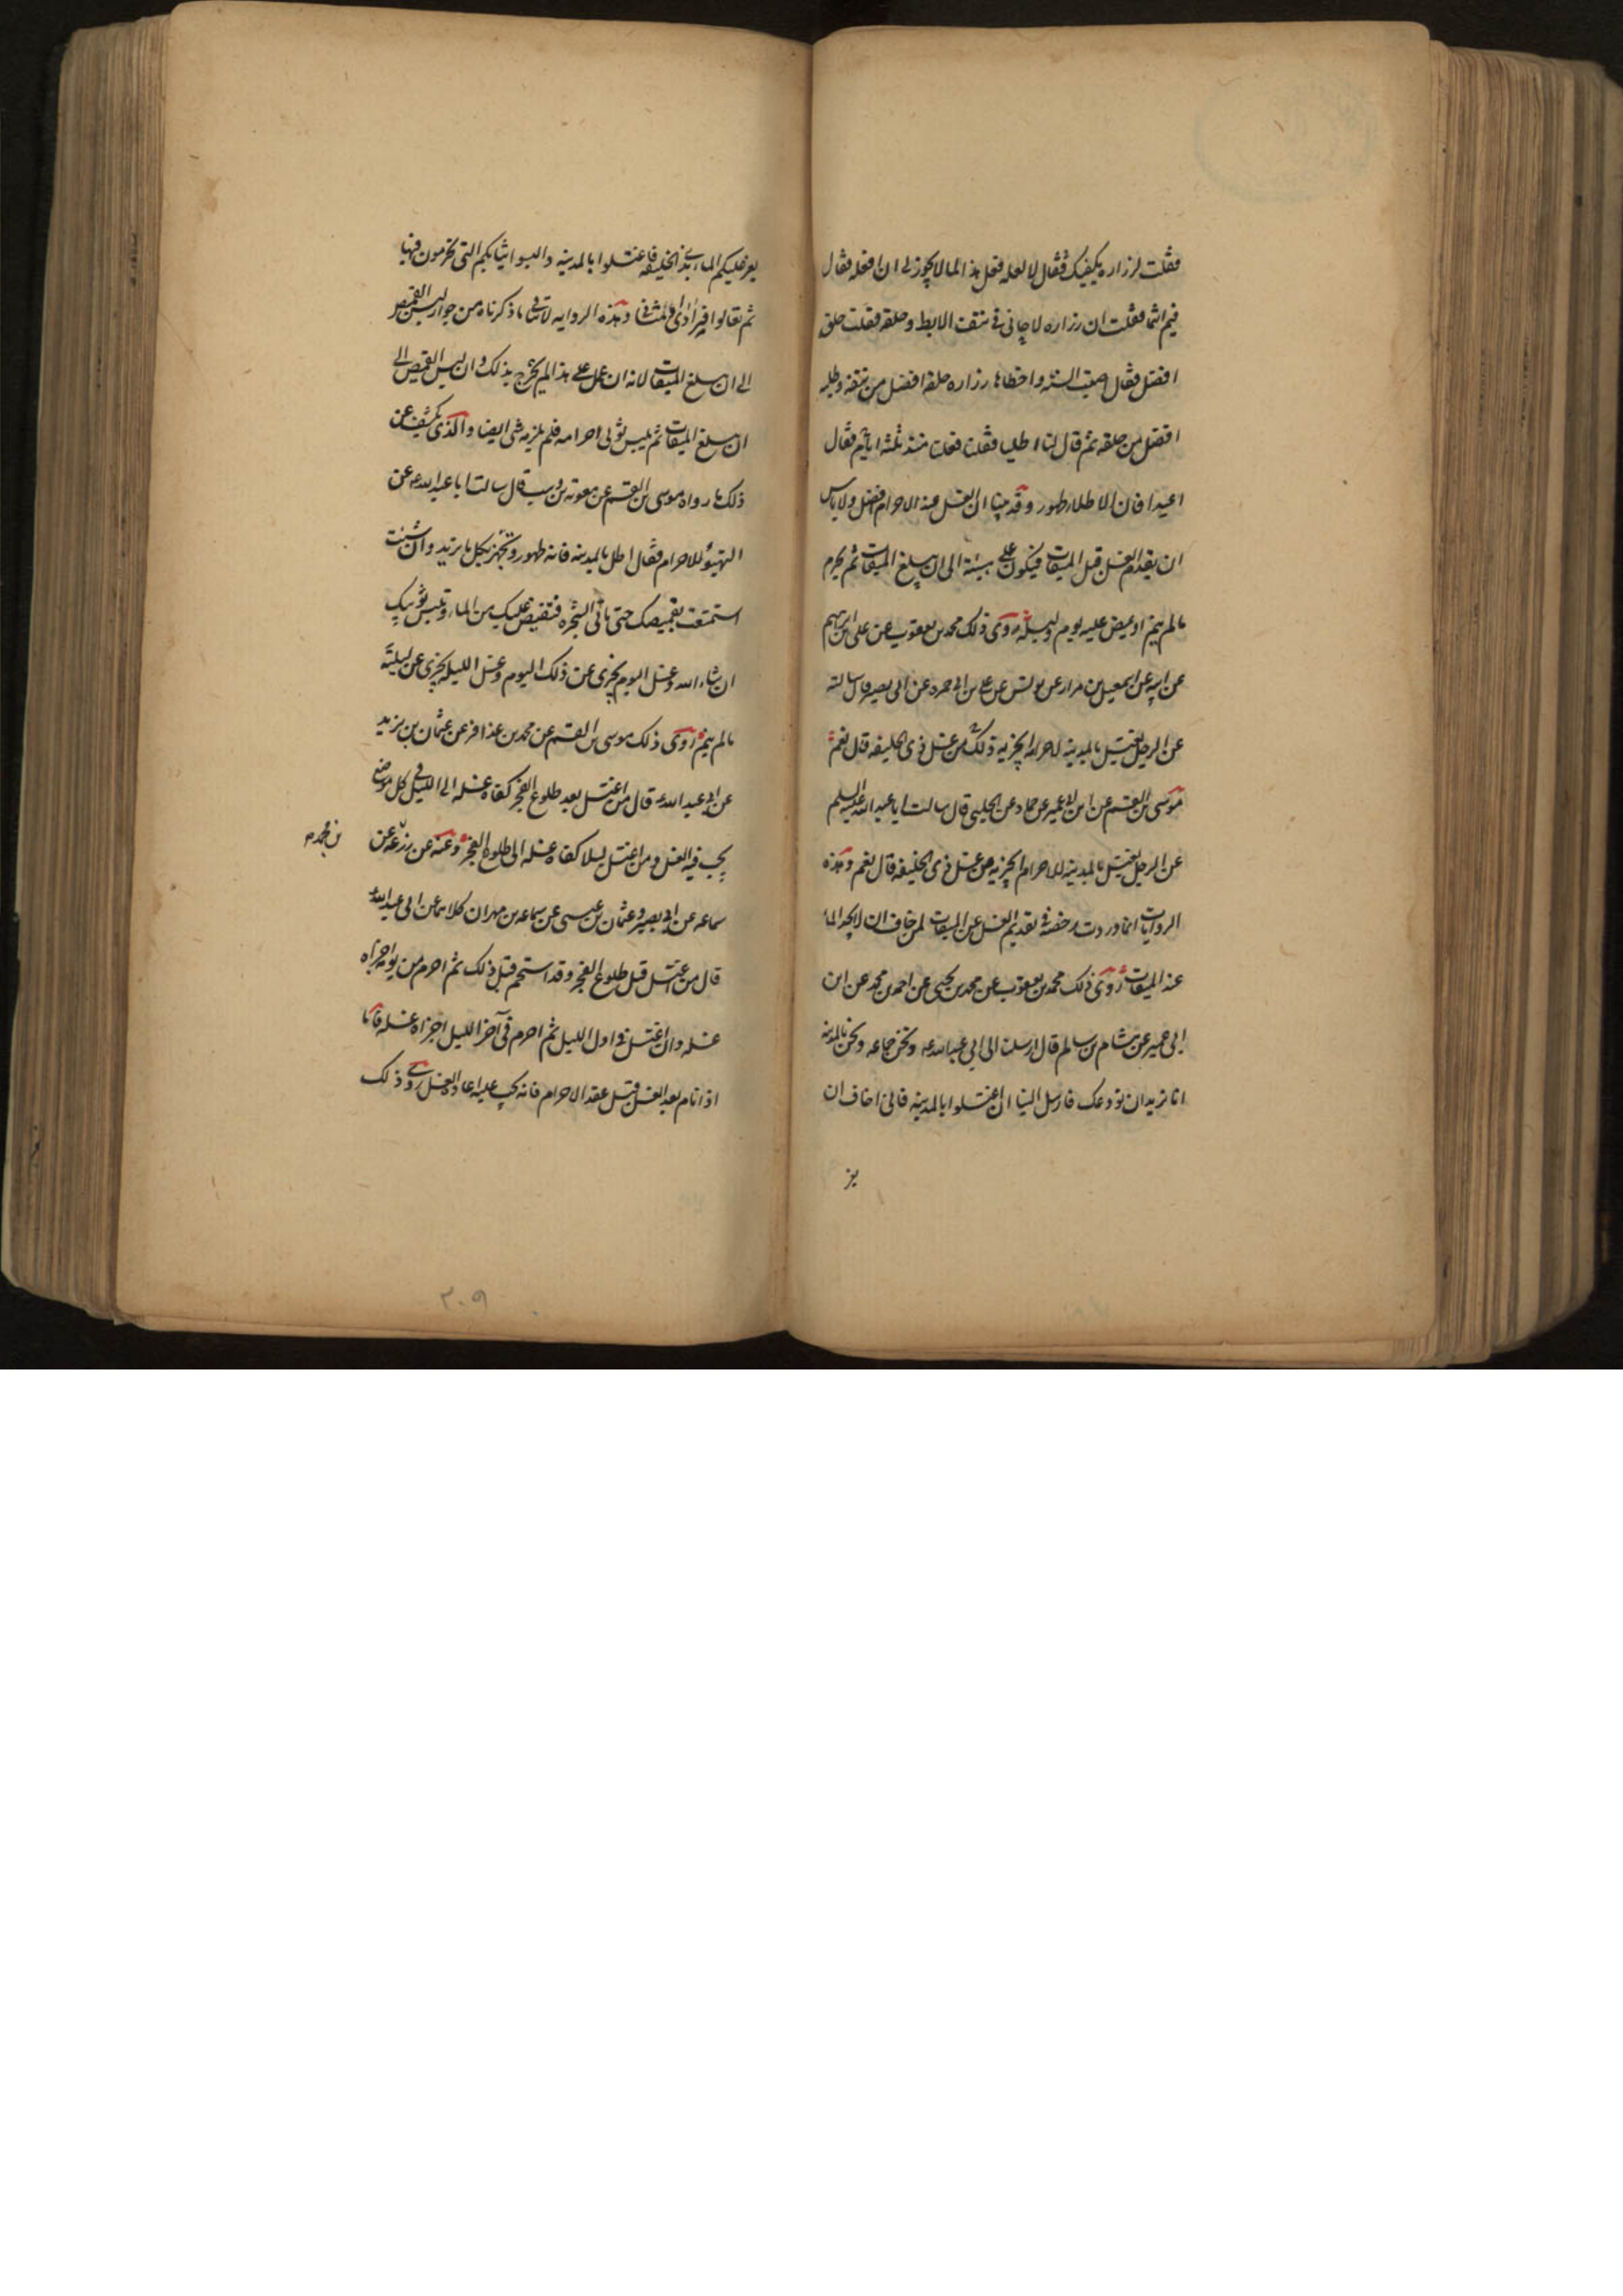 فقلت لزراره يكفيك فقال لا لعله فعل هذا لما لا يجوز لي ان افعله فقال
فيم انتما فقلت ان زراره لاحاني في نتف الابط وحلقه فقلت حلقه
افضل فقال اصبت السنه واخطاها زراره حلقه افضل من نتفه وطليه
افضل من حلقه ثم قال لنا اطليا فقلنا فعلنا منذ ثلثه ايام فقال
اعيدا فان الاطلاء طهور وقد بينا ان الغسل عند الاحرام افضل ولا باس
ان يقدم الغسل قبل الميقات فيكون على هيئته الى ان يبلغ الميقات ثم يحرم
مالم ينم او يمض عليه يوم وليله روى ذلك محمد بن يعقوب عن علي بن ابرهيم
عن ابيه عن اسمعيل بن مرار عن يونس عن علي بن ابي حمزه عن ابي بصير قال سالته
عن الرجل يغتسل بالمدينه لاحرامه ايجزيه ذلك من غسل ذي الحليفه قال نعم
موسى بن القسم عن ابن ابي عمير عن حماد عن الحلبي قال سالت ابا عبد الله عليه السلم
عن الرجل يغتسل بالمدينه للاحرام ايجزيه عن غسل ذي الحليفه قال نعم وهذه
الروايات انما وردت رخصه في تقديم الغسل عن الميقات لمن خاف ان لا يجد الماء
عند الميقات روى ذلك محمد بن يعقوب عن محمد بن يحيى عن احمد بن محمد عن ابن
ابي عمير عن هشام بن سالم قال ارسلنا الى ابي عبد الله ع ونحن جماعه ونحن بالمدينه
انا نريد ان نودعك فارسل الينا ان اغتسلوا بالمدينه فاني اخاف ان
يز
يعز عليكم الماء بذي الحليفه فاغتسلوا بالمدينه والبسوا ثيابكم التي تحرمون فيها
ثم تعالوا فرادى او مثاني وهذه الروايه لا تنافي ما ذكرناه من جواز لبس القميص
الى ان يبلغ الميقات لانه ان عمل على هذا لم يحرج بذلك وان لبس القميص الى
ان يبلغ الميقات ثم يلبس ثوبي احرامه فلم يلزمه شي ايضا والذي يكشف عن
ذلك ما رواه موسى بن القسم عن معويه بن وهب قال سالت ابا عبد الله ع عن
التهيؤ للاحرام فقال اطل بالمدينه فانه طهور وتجهز بكل ما تريد وان شئت
استمتعت بقميصك حتى تاتي الشجره فتفيض عليك من الماء وتلبس ثوبيك
ان شاء الله وغسل اليوم يجزي عن ذلك اليوم وغسل الليله يجزي عن ليلته
مالم ينم روى ذلك موسى بن القسم عن محمد بن عذافر عن عثمان بن يزيد
عن ابي عبد الله ع قال من اغتسل بعد طلوع الفجر كفاه غسله الى الليل في كل موضع
يجب فيه الغسل ومن اغتسل ليلا كفاه غسله الى طلوع الفجر وعنه عن زرعه عن
سماعه عن ابي بصير وعثمان بن عيسى عن سماعه بن مهران كلاهما عن ابي عبد الله ع
قال من اغتسل قبل طلوع الفجر وقد استحم قبل ذلك ثم احرم من يومه اجزاه
غسله وان اغتسل في اول الليل ثم احرم في آخر الليل اجزاه غسله فاما
اذا نام بعد الغسل وقبل عقد الاحرام فانه يجب عليه اعاده الغسل روى ذلك
٣٠٩